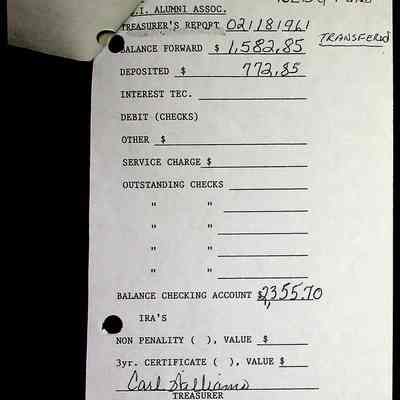 .I. ALUMNI ASSOC.
TREASURER'S REPORT 021181961
TRANSFERED
BALANCE FORWARD $ 1,582.85
DEPOSITED $ 772.85
INTEREST TEC.
DEBIT (CHECKS)
OTHER $
SERVICE CHARGE $
OUTSTANDING CHECKS
" "
" "
" "
" "
BALANCE CHECKING ACCOUNT $2355.70
IRA'S
NON PENALITY ( ), VALUE $
3yr. CERTIFICATE ( ), VALUE $
Carl Williams
TREASURER